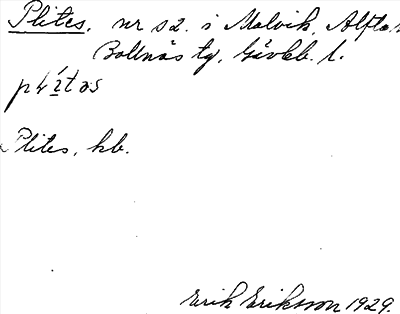 Plites, nr 52. i Malvik, Alfta,
Bollnäs tg, Gävleb. l.
Plites, kb.
Erik Eriksson 1929.